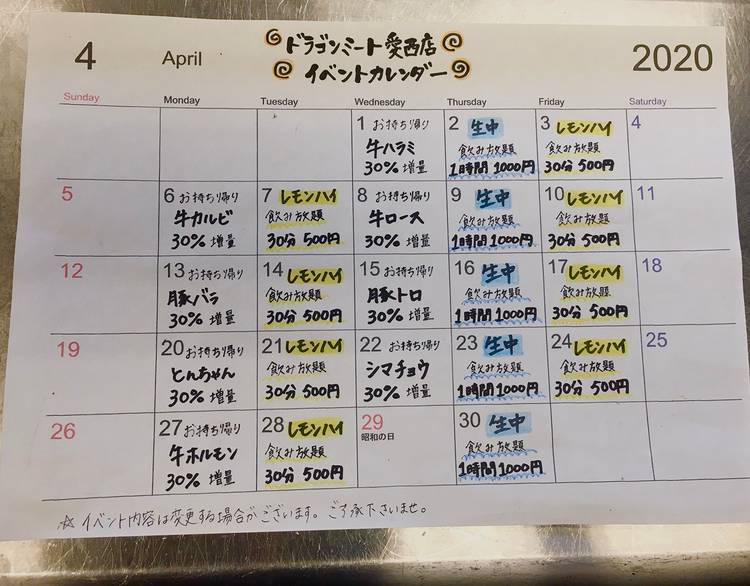 4 April ドラゴンミート愛西店 2020
イベントカレンダー
Sunday Monday Tuesday Wednesday Thursday Friday Saturday
1 お持ち帰り 2 生中 3 レモンハイ 4
牛ハラミ 飲み放題 飲み放題
30% 増量 1時間 1000円 30分 500円
5 6 お持ち帰り 7 レモンハイ 8 お持ち帰り 9 生中 10 レモンハイ 11
牛カルビ 飲み放題 牛ロース 飲み放題 飲み放題
30% 増量 30分 500円 30% 増量 1時間 1000円 30分 500円
12 13 お持ち帰り 14 レモンハイ 15 お持ち帰り 16 生中 17 レモンハイ 18
豚バラ 飲み放題 豚トロ 飲み放題 飲み放題
30% 増量 30分 500円 30% 増量 1時間 1000円 30分 500円
19 20 お持ち帰り 21 レモンハイ 22 お持ち帰り 23 生中 24 レモンハイ 25
とんちゃん 飲み放題 シマチョウ 飲み放題 飲み放題
30% 増量 30分 500円 30% 増量 1時間 1000円 30分 500円
26 27 お持ち帰り 28 レモンハイ 29 30 生中
牛ホルモン 飲み放題 昭和の日 飲み放題
30% 増量 30分 500円 1時間 1000円
☆ イベント内容は変更する場合がございます。ご了承下さいませ。